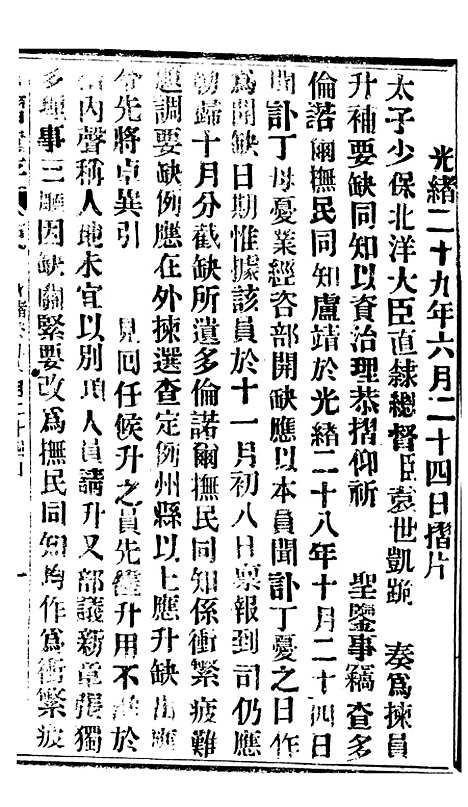 光緒二十九年六月二十四日摺片
太子少保北洋大臣直隸總督臣袁世凱跪　奏爲揀員
升補要缺同知以資治理恭摺仰祈　聖鑒事竊查多
倫諾爾撫民同知盧靖於光緒二十八年十月二十四日
聞訃丁母憂業經咨部開缺應以本員聞訃丁憂之日作
爲開缺日期惟據該員於十一月初八日稟報到司仍應
勒歸十月分截缺所遺多倫諾爾撫民同知係衝繁疲難
題調要缺例應在外揀選查定例州縣以上應升缺出應
令先將卓異引　見回任候升之員先儘升用不准於
摺內聲稱人地未宜以別項人員請升又部議新章張獨
多理事三廳因缺關緊要改爲撫民同知均作爲衝繁疲